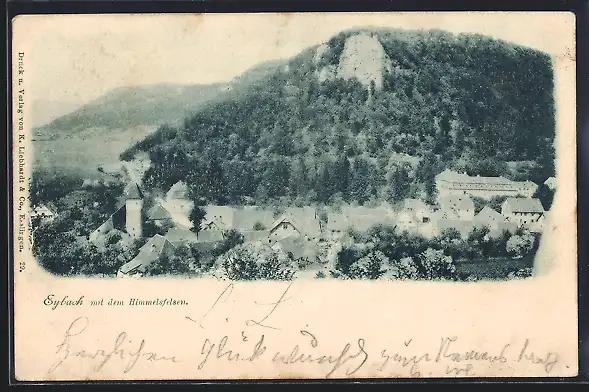 Druck u. Verlag von K. Liebhardt & Co., Esslingen. 29.
Eybach mit dem Himmelsfelsen.
L. L.
Herzlichen Glückwunsch zum Namenstag